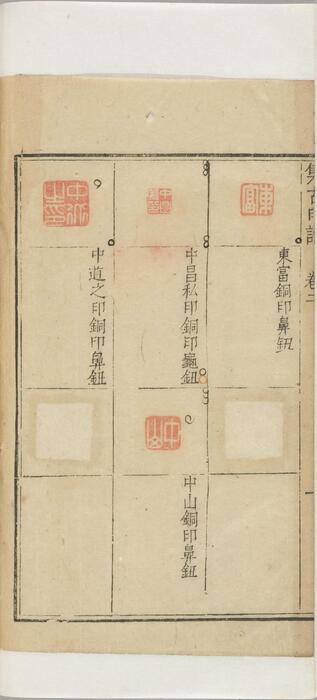 集古印譜 卷二
一
東富
東富銅印鼻鈕
中昌私印銅印龜鈕
中道之印銅印鼻鈕
中山
中山銅印鼻鈕